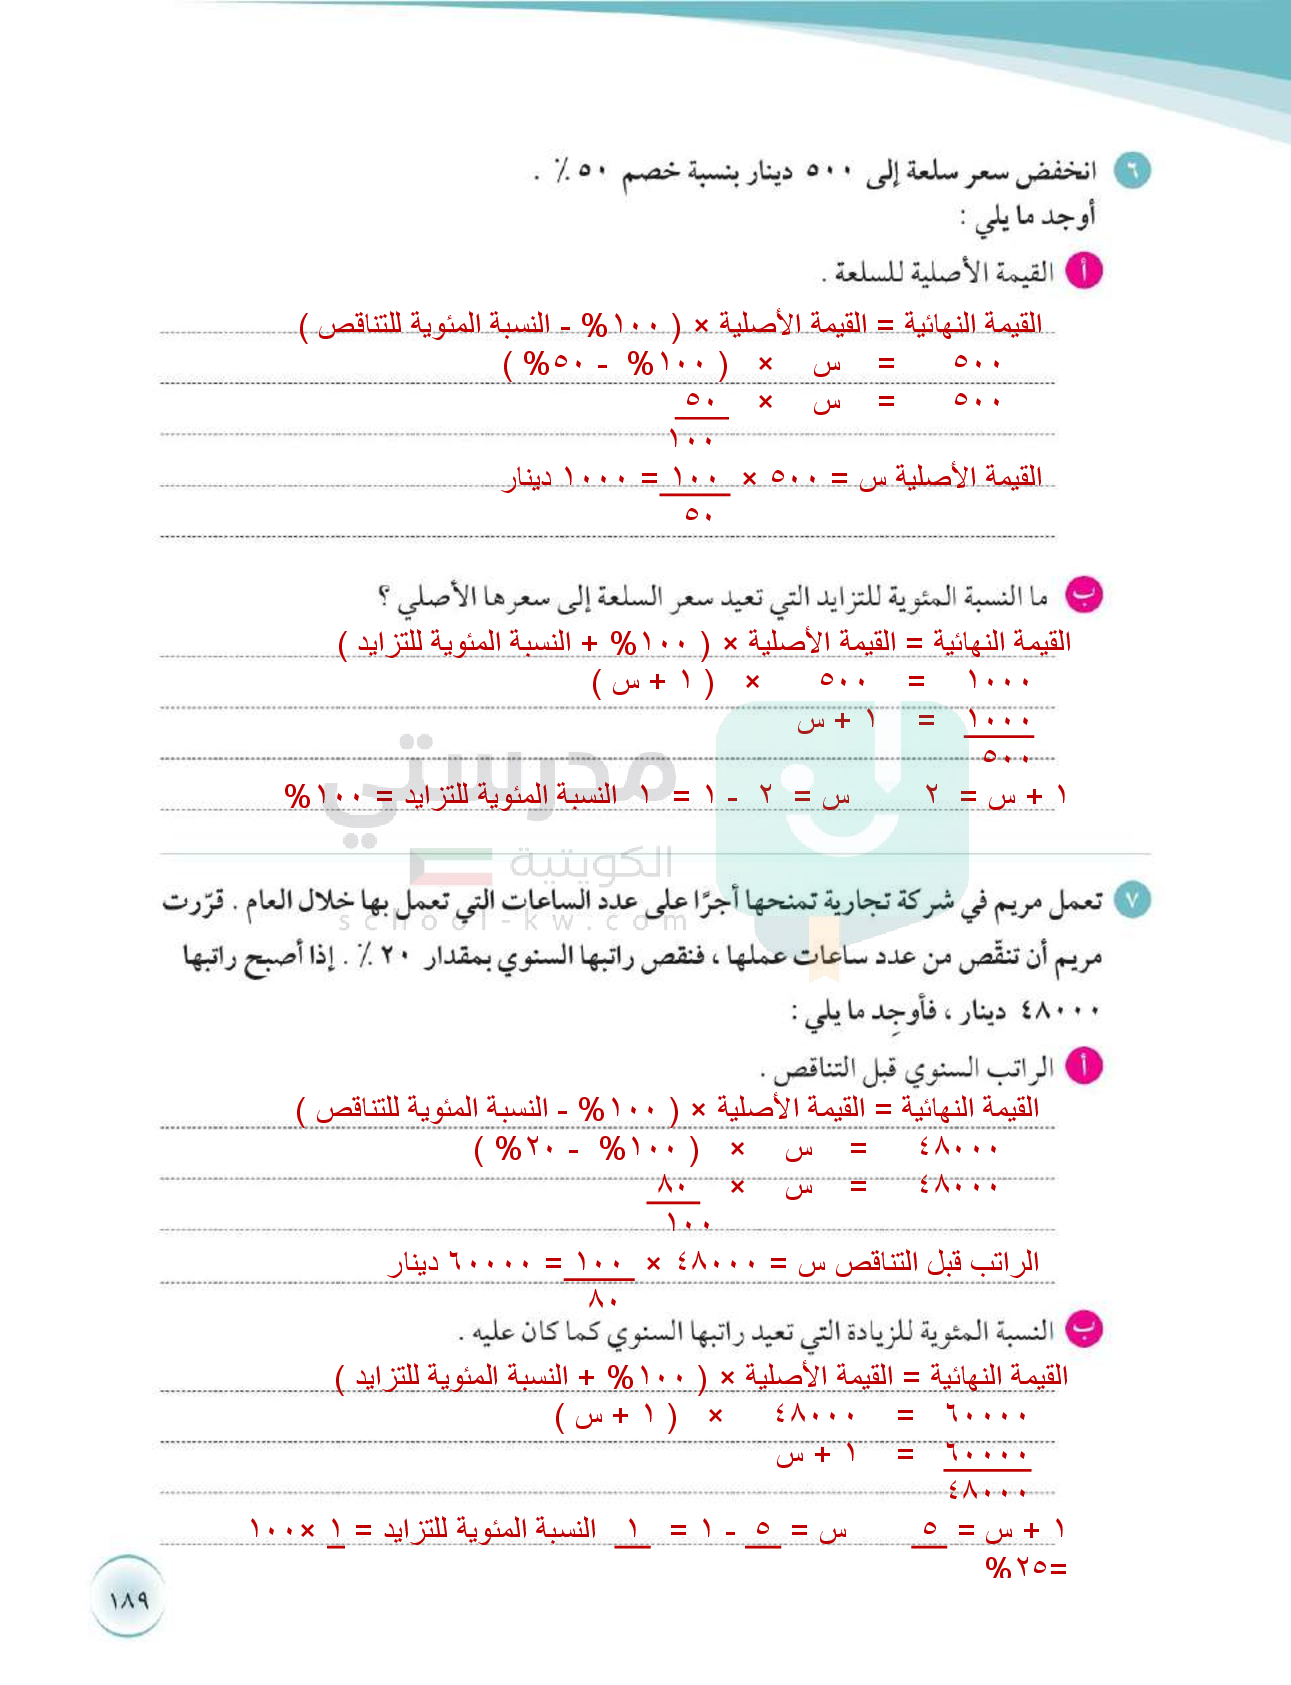 ٦ انخفض سعر سلعة إلى ٥٠٠ دينار بنسبة خصم ٥٠ ٪ .
أوجد ما يلي :
أ القيمة الأصلية للسلعة .
القيمة النهائية = القيمة الأصلية × ( ١٠٠% - النسبة المئوية للتناقص )
٥٠٠ = س × ( ١٠٠% - ٥٠% )
٥٠٠ = س × ٥٠
١٠٠
القيمة الأصلية س = ٥٠٠ × ١٠٠ = ١٠٠٠ دينار
٥٠
ب ما النسبة المئوية للتزايد التي تعيد سعر السلعة إلى سعرها الأصلي ؟
القيمة النهائية = القيمة الأصلية × ( ١٠٠% + النسبة المئوية للتزايد )
١٠٠٠ = ٥٠٠ × ( ١ + س )
١٠٠٠ = ١ + س
٥٠٠
١ + س = ٢ س = ٢ - ١ = ١ النسبة المئوية للتزايد = ١٠٠%
مدرستي
الكويتية
school-kw.com
٧ تعمل مريم في شركة تجارية تمنحها أجرًا على عدد الساعات التي تعمل بها خلال العام . قرّرت
مريم أن تنقّص من عدد ساعات عملها ، فنقص راتبها السنوي بمقدار ٢٠ ٪ . إذا أصبح راتبها
٤٨٠٠٠ دينار ، فأوجِد ما يلي :
أ الراتب السنوي قبل التناقص .
القيمة النهائية = القيمة الأصلية × ( ١٠٠% - النسبة المئوية للتناقص )
٤٨٠٠٠ = س × ( ١٠٠% - ٢٠% )
٤٨٠٠٠ = س × ٨٠
١٠٠
الراتب قبل التناقص س = ٤٨٠٠٠ × ١٠٠ = ٦٠٠٠٠ دينار
٨٠
ب النسبة المئوية للزيادة التي تعيد راتبها السنوي كما كان عليه .
القيمة النهائية = القيمة الأصلية × ( ١٠٠% + النسبة المئوية للتزايد )
٦٠٠٠٠ = ٤٨٠٠٠ × ( ١ + س )
٦٠٠٠٠ = ١ + س
٤٨٠٠٠
١ + س = ٥ س = ٥ - ١ = ١ النسبة المئوية للتزايد = ١ ×١٠٠
=٢٥%
١٨٩